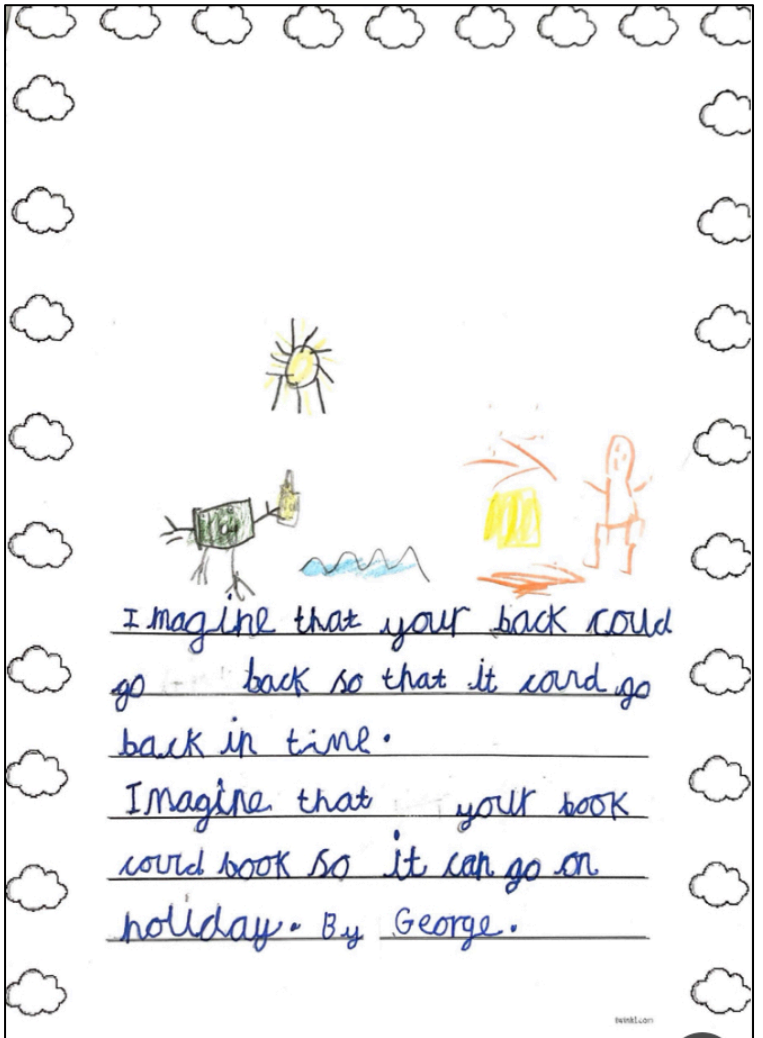 Imagine that your back could
go back so that it could go
back in time.
Imagine that your book
could book so it can go on
holiday. By George.
twinkl.com